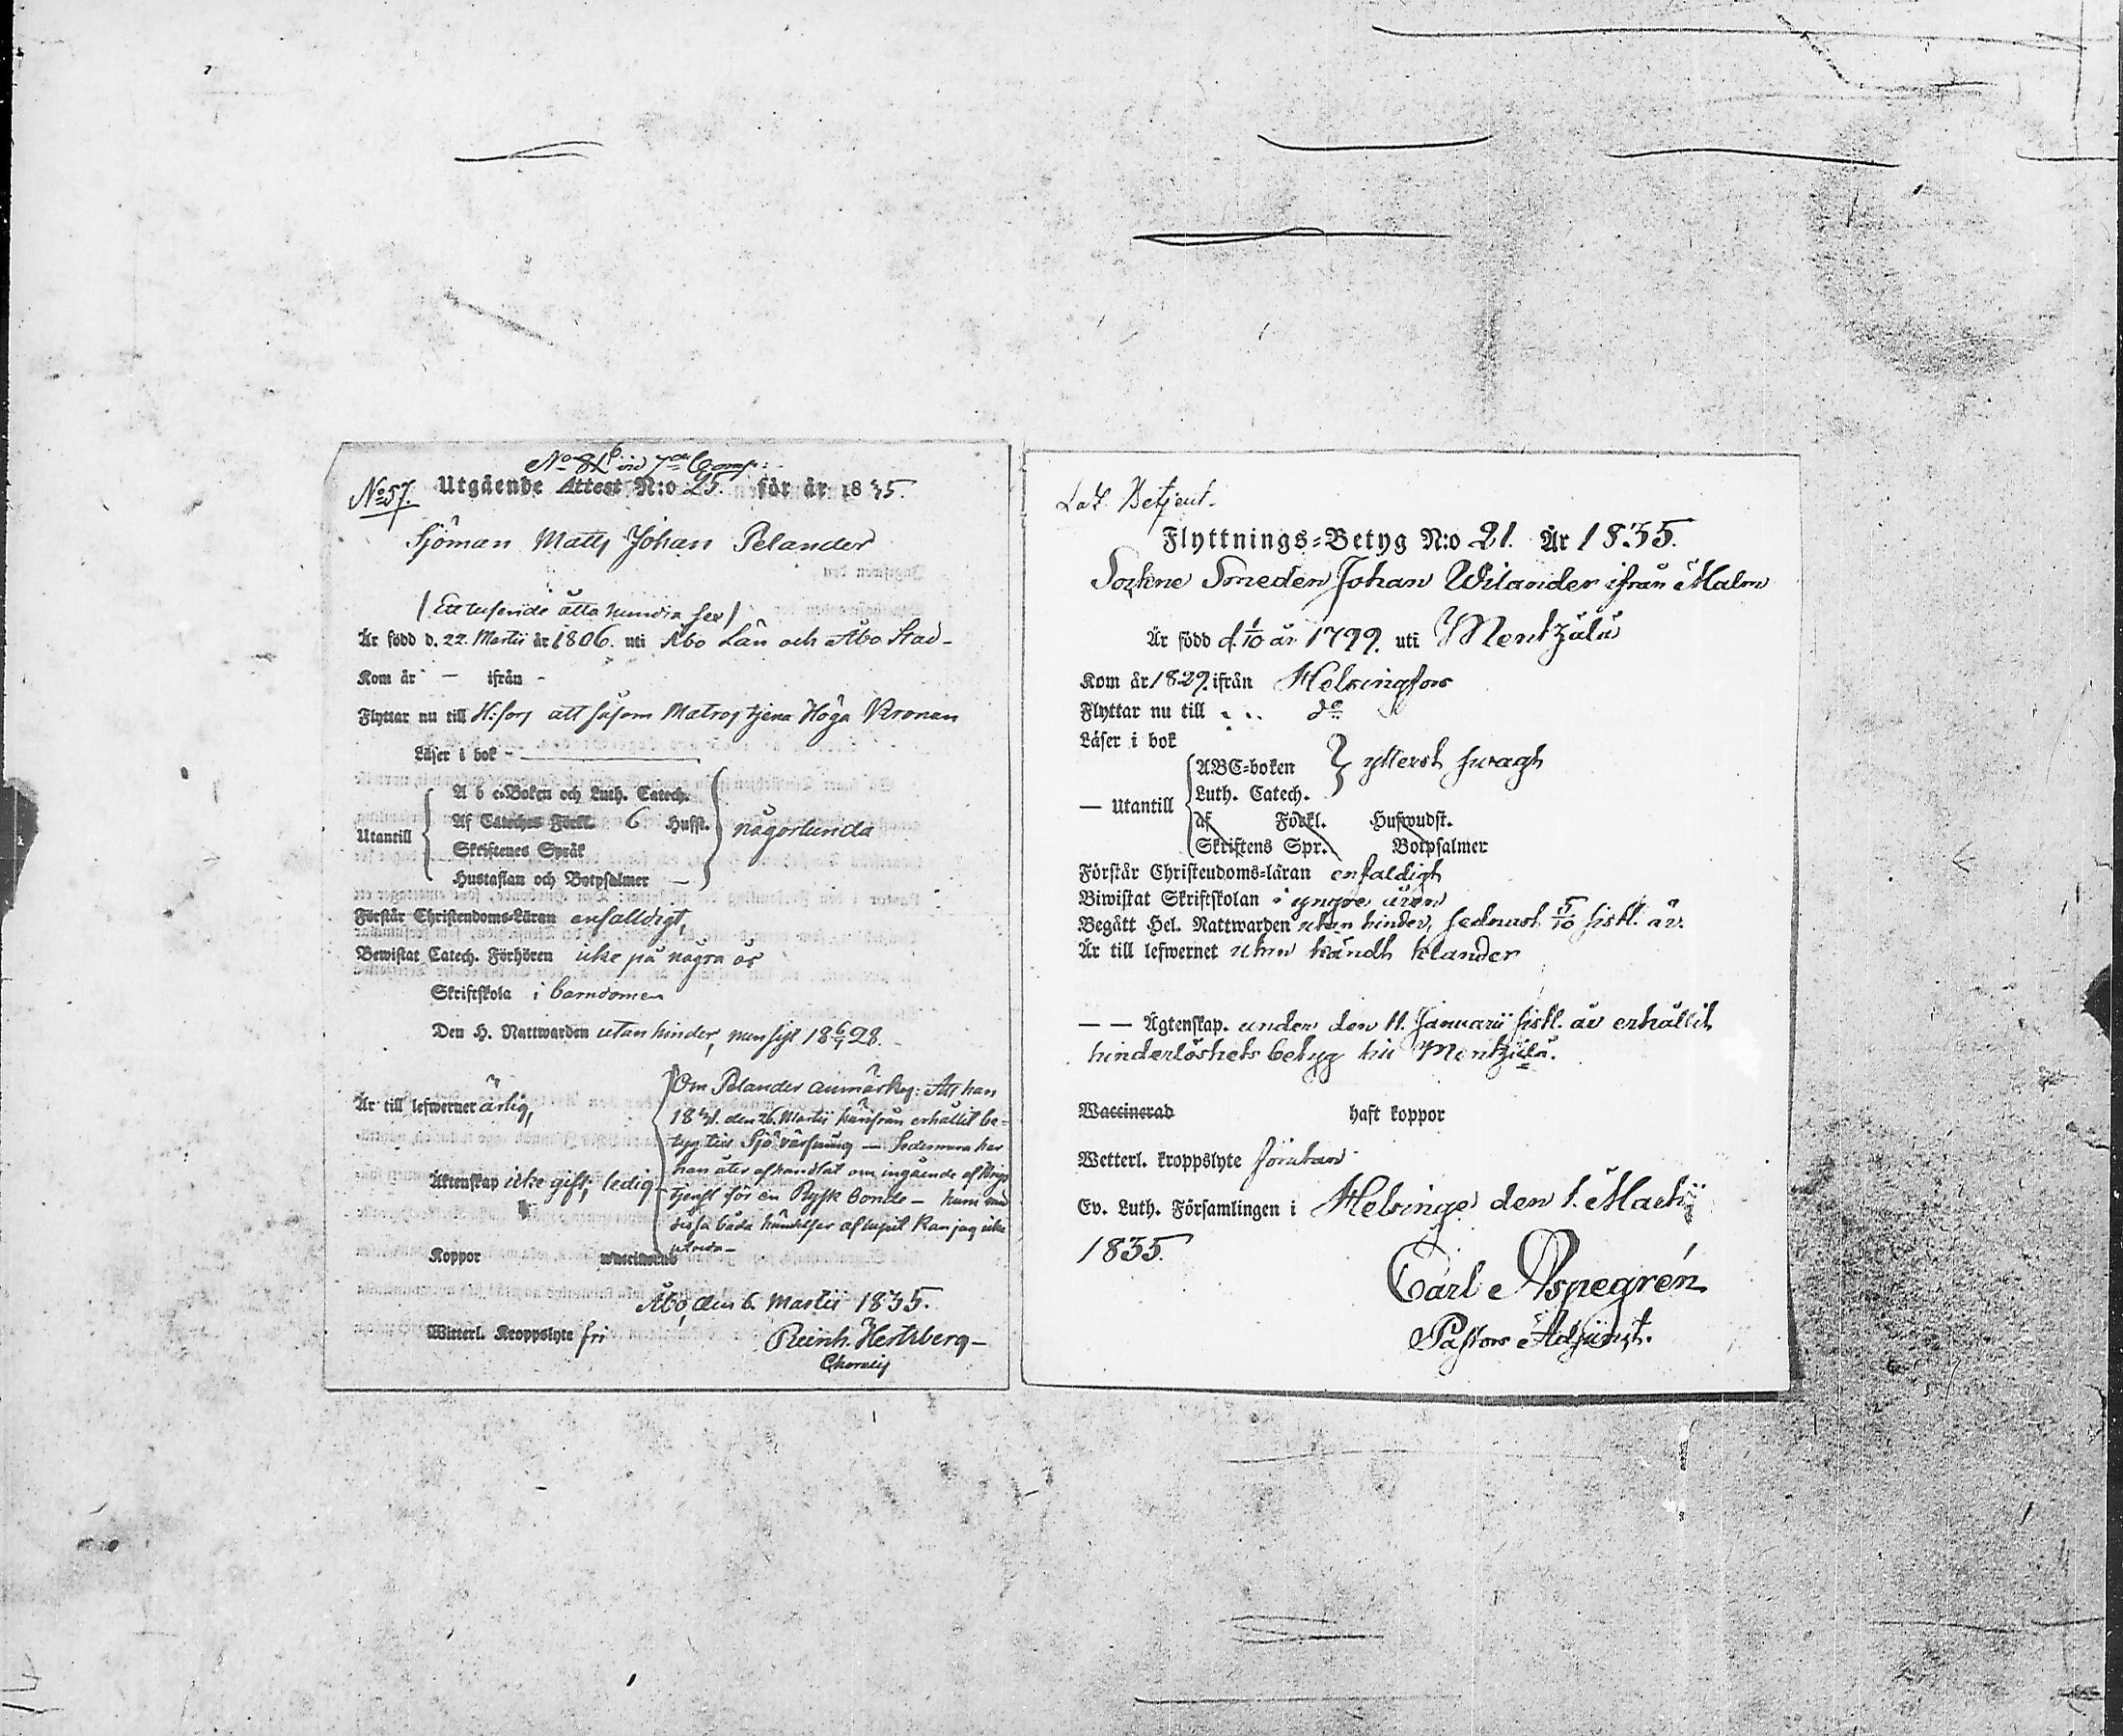 No 57.
Utgående Attest N:o 25. för år 1835.
Sjöman Matts Johan Pelander
(Ett tusende åtta hundra sex)
Är född d. 22 Martii år 1806. uti Åbo Län och Åbo Stad -
Kom år - ifrån -
Flyttar nu till H:fors att såsom Matros tjena Höga Kronan
Läser i bok -
Utantill
A b c-Boken och Luth. Catech.
Af Cateches Förkl. 6 Hufst.
Skriftenes Språk
Hustaflan och Botpsalmer —
någorlunda
Förstår Christendoms-Läran enfalldigt,
Bewistat Catech. Förhören icke på några år
Skriftskola i barndomen
Den H. Nattwarden utan hinder,
Är till lefwernet ärlig,
Äktenskap icke gift, ledig
Om Pelander anmärkes: Att han
den 26 Martii härifrån erhållit be-
tyg till Sjö - Sedermera har
han åter afhandlat om ingående af Krigs
tjenst för en Rysk bonde - huru med
dessa båda händelser aflupit kan jag icke
utreda -
Koppor
Åbo, den 6 Martii 1835.
Witterl. Kroppslyte fri
Reinh. Hertzberg -
Flyttnings-Betyg N:o 21. År 1835.
Sockne Smeden Johan Wilander ifrån Malm
Är född d. 1/10 år 1799. uti Mentzälä
Kom år 1829. ifrån Helsingfors
Flyttar nu till . . . do
Läser i bok
— Utantill
ABC-boken
Luth. Catech.
ytterst swagt
af Förkl. Hufwudst.
Skriftens Spr. Botpsalmer
Förstår Christendoms-läran enfaldigt
Biwistat Skriftskolan i yngre åren
Begått Hel. Nattwarden utan hinder, sednast 5/10 sistl. år.
Är till lefwernet utan kändt klander
— — Ägtenskap. under den 11. Januarii sistl. år erhållit
hinderlöshets betyg till Mentzälä.
Waccinerad haft koppor
Wetterl. kroppslyte
Ev. Luth. Församlingen i Helsinge den 1. Martii
1835.
Carl Aspegrén
Pastors Adjunct.